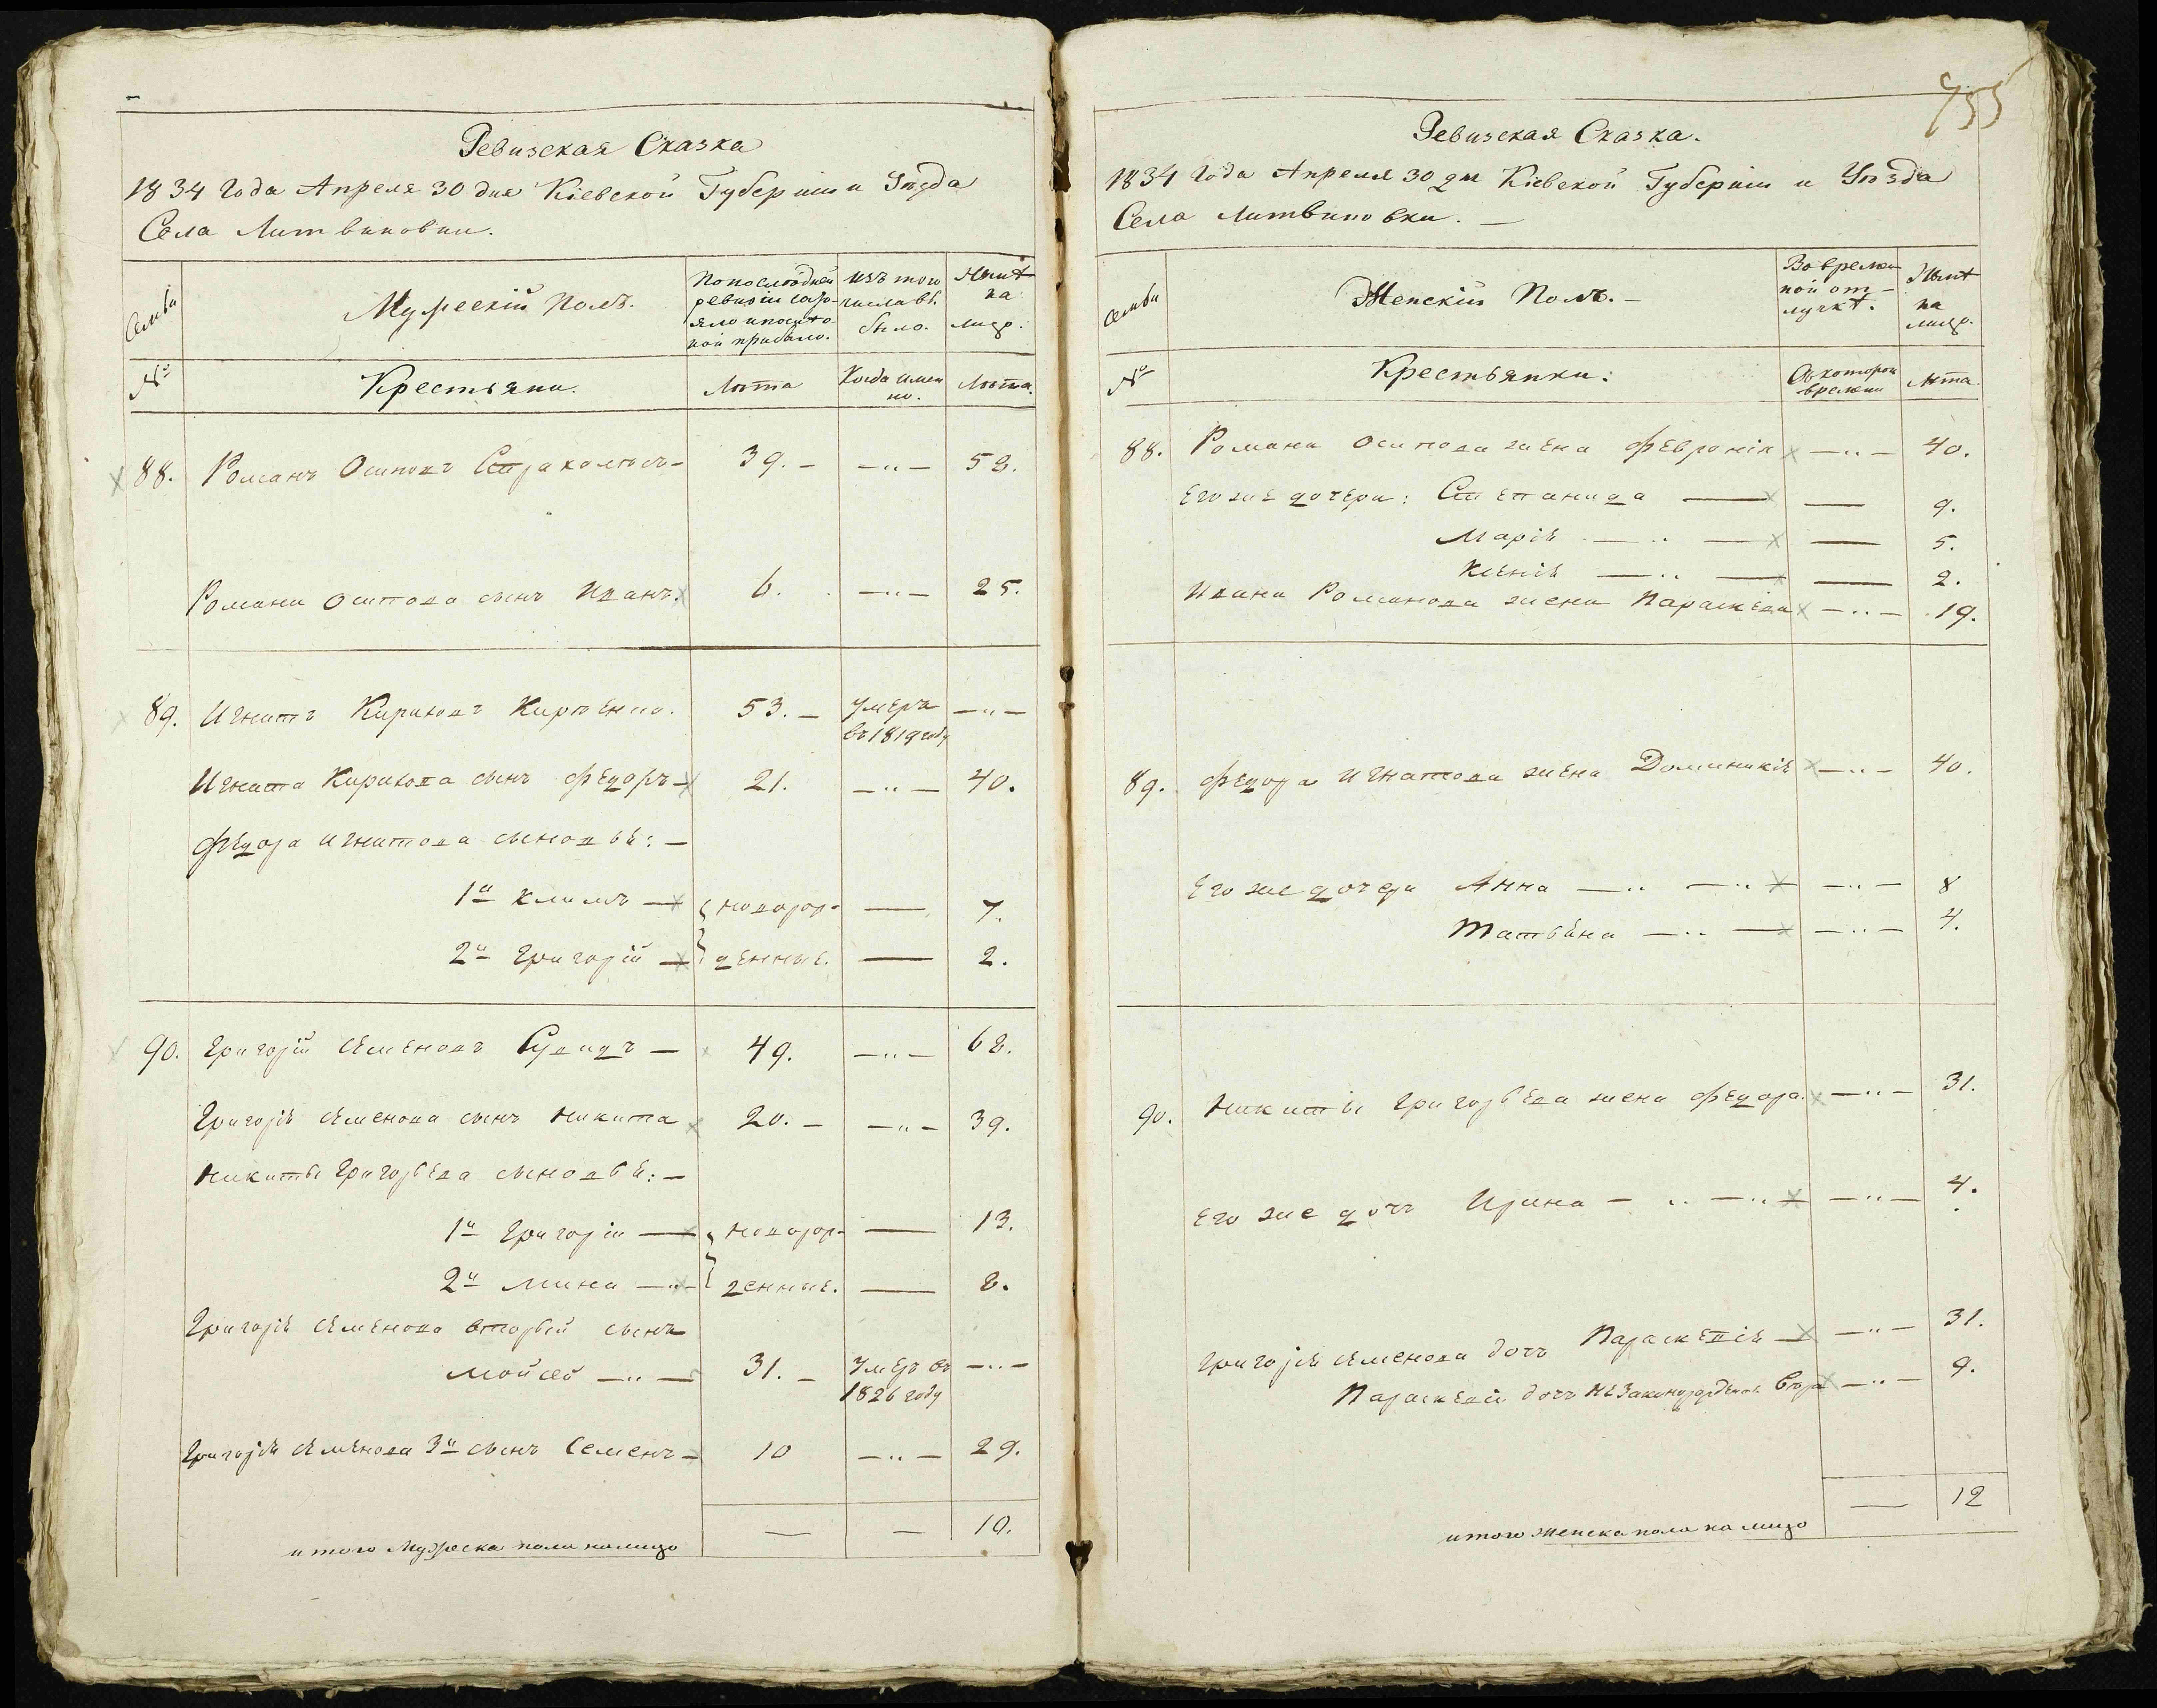 Ревизская Сказка
1834 года Апреля 30 дня Кіевской Губерніи и Уѣзда
Села Литвиновки.
Семьи
Мужескій Полъ.
По последней ревизіи состояло и после оной прибыло.
Изъ того числа вы было.
Нынѣ на лицо.
№
Крестьяни.
Лѣта
Когда имен но.
Лѣта.
88. Романъ Осиповъ 39. — —"— 58.
Романа Осипова сынъ Иванъ. 6. —"— 25.
89. Игнатъ Кириловъ 53. — Умеръ въ 1819 году —"—
Игната Кирилова сынъ Федоръ — 21. —"— 40.
Федора Игнатова сыновья: —
1й Климъ — новорож- — 7.
2й Григорій — денные. — 2.
90. Григорій Семеновъ — 49. —"— 68.
Григорія Семенова сынъ Никита 20. — —"— 39.
Никиты Григорьева сыновья: —
1й Григорій — новорож- — 13.
2й Мина —"— денные. — 8.
Григорія Семенова вторый сынъ
Мойсей —"— 31. — Умеръ въ 1826 году —"—
Григорія Семенова 3й сынъ Семенъ — 10 —"— 29.
итого Мужеска пола налицо — — 10.
755
Ревизская Сказка.
1834 года Апреля 30 дня Кіевской Губерніи и Уѣзда
Села Литвиновки. —
Семьи
Женскій Полъ. —
Во времен ной от- лучкѣ.
Нынѣ на лицо.
№
Крестьянки:
Съ которого времени
Лѣта.
88. Романа Осипова жена Февронія —"— 40.
Его же дочери: Степанида — — 9.
Марія —"— — 5.
Ксенія —"— — 2.
Ивана Романова жена Параскева —"— 19.
89. Федора Игнатова жена Доминикія —"— 40.
Его же дочери Анна —"— —"— —"— 8
Татьяна —"— — —"— 4.
90. Никиты Григорьева жена Федора. —"— 31.
Его же дочь Ирина —"— —"— —"— 4.
Григорія Семенова дочь Параскевія — —"— 31.
Параскевіи дочь незаконорожденная Вѣра —"— 9.
итого женска пола на лицо — 12